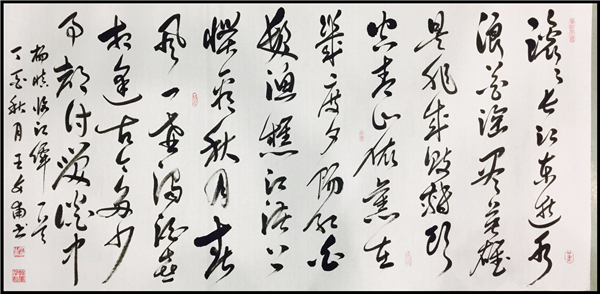 滾々長江東逝水
浪花淘盡英雄
是非成敗轉頭
空青山依舊在
幾度夕陽紅白
髮漁樵江渚上
慣看秋月春
風一壺濁酒喜
相逢古今多少
事都付笑談中
楊慎臨江仙一首
丁酉秋月王文甫書